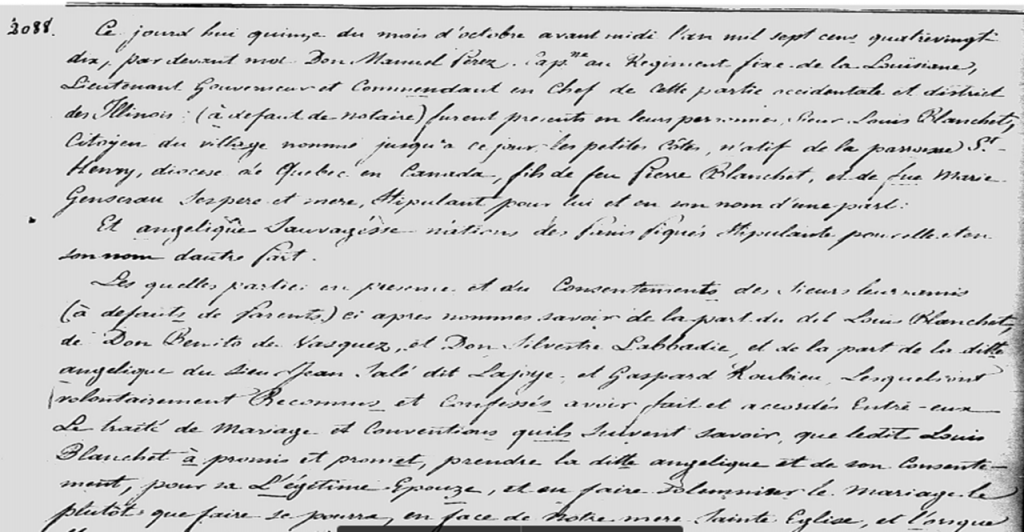 2088. Ce jourd'hui quinze du mois d'octobre avant midi l'an mil sept cens quatrevingt
dix, par devant moi Don Manuel Perez, Cap.ne au Regiment fixe de la Louisiane,
Lieutenant Gouverneur et Commendant en Chef de Cette partie occidentale et district
des Illinois (à defaut de notaire) furent presents en leurs personnes, Sieur Louis Blanchet,
Citoyen du village nommé jusqu'a ce jour les petites Côtes, natif de la paroisse St.
Henry, diocese de Quebec en Canada, fils de feu Pierre Blanchet, et de fue Marie
Genserau Ses pere et mere, Stipulant pour lui et en son nom d'une part:
Et angelique Sauvagesse nations des Stipulante pour elle et en
son nom d'autre part.
Les quelles partie en presence et du Consentements des Sieurs leur amis
(à defauts de parents) ci apres nommés savoir de la part du dit Louis Blanchet,
de Don Benito de Vasquez, et Don Silvestre Labbadie, et de la part de la ditte
angelique du Sieu Jean Salé dit Lajoye et Gaspard Roubieu, Lesquels ont
volontairement Reconnus et Confessés avoir fait et accordés Entre-eux
Le traité de Mariage et Conventions quils Suivent Savoir, que ledit Louis
Blanchet à promis et promet, prendre la ditte angelique et de son Consente-
ment, pour sa Légitime Epouze, et en faire Solemniser le Mariage le
plutôt que faire se pourra, en face de Notre mere Sainte Eglise, et lorsque